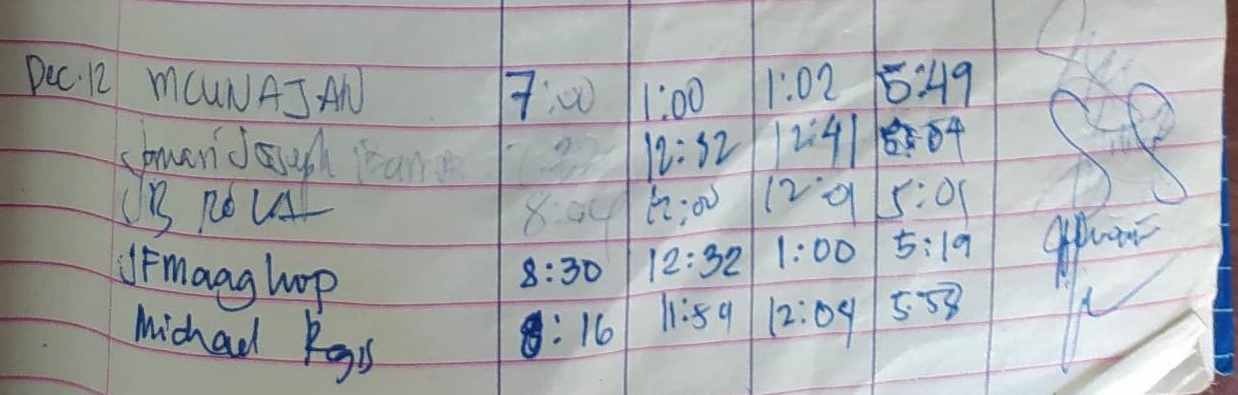 Dec. 12 MCUNAJAN 7:00 1:00 1:02 5:49
Joseph 12:32 12:41
JB 8:04 12:00 5:01
JFmaaghop 8:30 12:32 1:00 5:19
Michael Regis 8:16 11:59 12:04 5:58